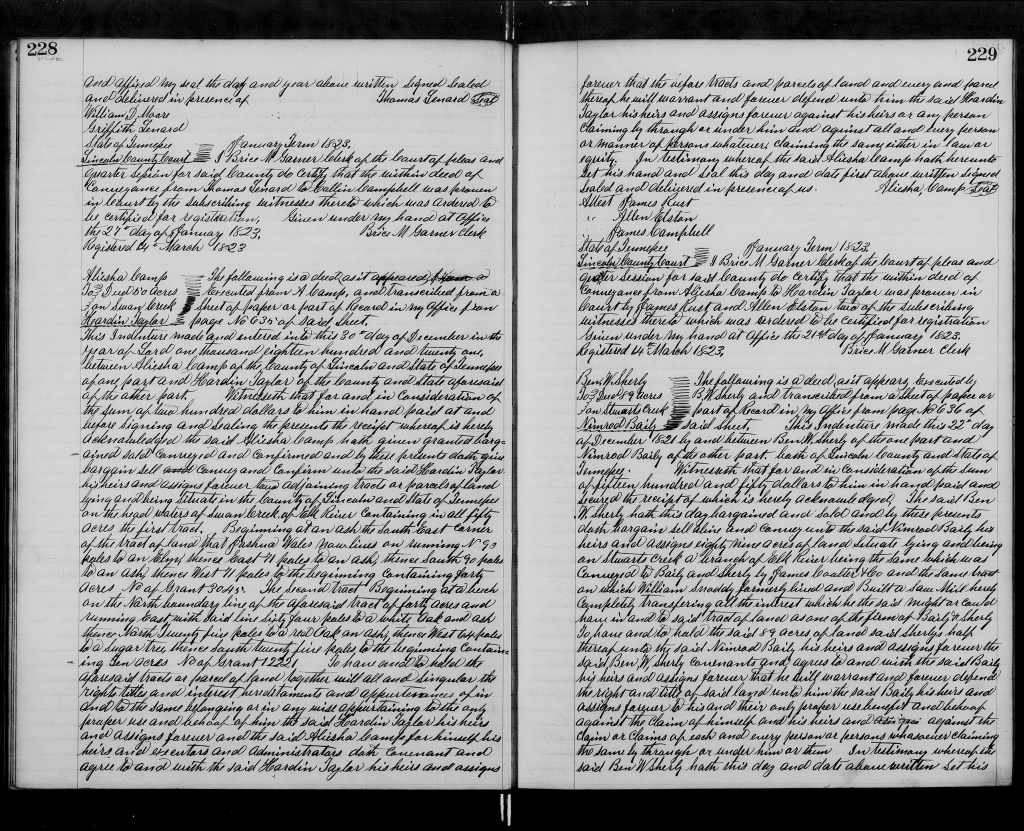 228
and affixed my seal the day and year above written signed sealed
and delivered in presence of Thomas Lenard Seal
William D. Moore
Griffith Lenard
State of Tennessee January Term 1823.
Lincoln County Court I Brice M Garner Clerk of the Court of pleas and
quarter session for said County do Certify that the within deed of
Conveyance from Thomas Lenard to Collin Campbell was proven
in Court by the subscribing witnesses thereto which was ordered to
be certified for registration, Given under my hand at Office
the 27th day of January 1823. Brice M Garner Clerk
Registered 4th March 1823
Aliesha Camp The following is a deed, as it appeared from a
To Deed 50 acres Executed from A Camp, and transcribed from a
on Swan Creek Sheet of paper or part of Record in my Office from
Hardin Taylor page No 635 of said Sheet.
This Indenture made and entered into this 30th day of December in the
year of Lord one thousand eighteen hundred and twenty one,
between Aliesha Camp of the County of Lincoln and State of Tennessee
of one part and Hardin Taylor of the County and State aforesaid
of the other part. Witnesseth that for and in Consideration of
the sum of two hundred dollars to him in hand paid at and
before signing and sealing the presents the receipt whereof is hereby
acknowledged the said Aliesha Camp hath given granted barg-
ained sold Conveyed and Confirmed and by these presents doth give
bargain sell and Convey and Confirm unto the said Hardin Taylor
his heirs and assigns forever two adjoining tracts or parcels of land
lying and being situate in the County of Lincoln and State of Tennessee
on the head waters of Swan Creek of Elk River Containing in all fifty
acres the first tract. Beginning at an ash the South East Corner
of the tract of land that Joshua Wales now lives on running No 93
poles to an Elm, thence East 71 poles to an ash, thence South 90 poles
to an ash, thence West 71 poles to the beginning Containing forty
acres No of Grant 3045. The Second tract Beginning at a beech
on the North boundary line of the aforesaid tract of forty acres and
running East with said line sixty four poles to a white oak and ash
thence North Twenty five poles to a red Oak an ash, thence West 64 poles
to a sugar tree, thence South twenty five poles to the beginning Contain-
ing ten acres No of Grant 12221 To have and to hold the
aforesaid tracts or parcel of land together with all and singular the
rights titles and interest hereditaments and appurtenances of in
and to the same belonging or in any wise appertaining to the only
proper use and behoof of him the said Hardin Taylor his heirs
and assigns forever and the said Aliesha Camp for himself his
heirs and executors and administrators doth Covenant and
agree to and with the said Hardin Taylor his heirs and assigns
229
forever that the before tracts and parcels of land and every and parcel
thereof he will warrant and forever defend unto him the said Hardin
Taylor his heirs and assigns forever against his heirs or any person
claiming by through or under him and against all and every person
or manner of persons whatever claiming the same either in law or
equity. In testimony whereof the said Aliesha Camp hath hereunto
set his hand and seal this day and date first above written signed
sealed and delivered in presence of us. Aliesha, Camp Seal
Attest James Rust
" Allen Elston
James Campbell
State of Tennessee January Term 1823.
Lincoln County Court I Brice M Garner Clerk of the Court of pleas and
quarter Session for said County do certify that the within deed of
Conveyance from Aliesha Camp to Hardin Taylor was proven in
Court by James Rust and Allen Elston two of the subscribing
witnesses thereto which was ordered to be certified for registration
Given under my hand at Office the 21st day of January 1823.
Registered 4th March 1823, Brice M Garner Clerk
Ben W. Sherly The following is a deed, as it appears, Executed by
To Deed 89 acres B. W Sherly and transcribed from a Sheet of paper or
on Stuarts Creek part of Record in my Office from page No 636 of
Nimrod Baily said Sheet. This Indenture made this 22nd day
of December 1821 by and between Ben W. Sherly of the one part and
Nimrod Baily of the other part. both of Lincoln County and State of
Tennessee. Witnesseth that for and in Consideration of the sum
of fifteen hundred and fifty dollars to him in hand paid and
secured the receipt of which is hereby acknowledged, The said Ben
W Sherly hath this day bargained and Sold and by these presents
doth bargain sell alien and Convey unto the said Nimrod Baily his
heirs and assigns eighty Nine acres of land situate lying and being
on Stuarts Creek a branch of Elk River being the same which was
Conveyed to Baily and Sherly by James Coulter & Co and the same tract
on which William Snoddy formerly lived and Built a Saw Mill hereby
Completely transfering all the interest which he the said might or could
have in and to said tract of land as one of the firm of Baily & Sherly
To have and to hold the said 89 acres of land said Sherlys half
thereof unto the said Nimrod Baily his heirs and assigns forever the
said Ben. W Sherly Covenants and agrees to and with the said Baily
his heirs and assigns forever that he will warrant and forever defend
the right and title of said land unto him the said Baily his heirs and
assigns forever to his and their only proper use benefit and behoof
against the Claim of himself and his heirs and against the
Claim or Claims of each and every person or persons whatsoever claiming
the same by through or under him or them In testimony whereof the
said Ben W Sherly hath this day and date above written set his